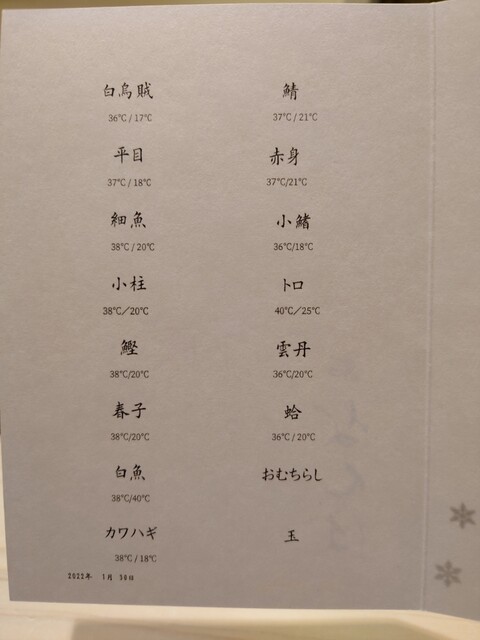 白烏賊
36℃ / 17℃
平目
37℃ / 18℃
細魚
38℃ / 20℃
小柱
38℃／20℃
鰹
38℃/20℃
春子
38℃/20℃
白魚
38℃/40℃
カワハギ
38℃ / 18℃
鯖
37℃ / 21℃
赤身
37℃/21℃
小鰭
36℃/18℃
トロ
40℃／25℃
雲丹
36℃/20℃
蛤
36℃ / 20℃
おむちらし
玉
2022年 1月 30日